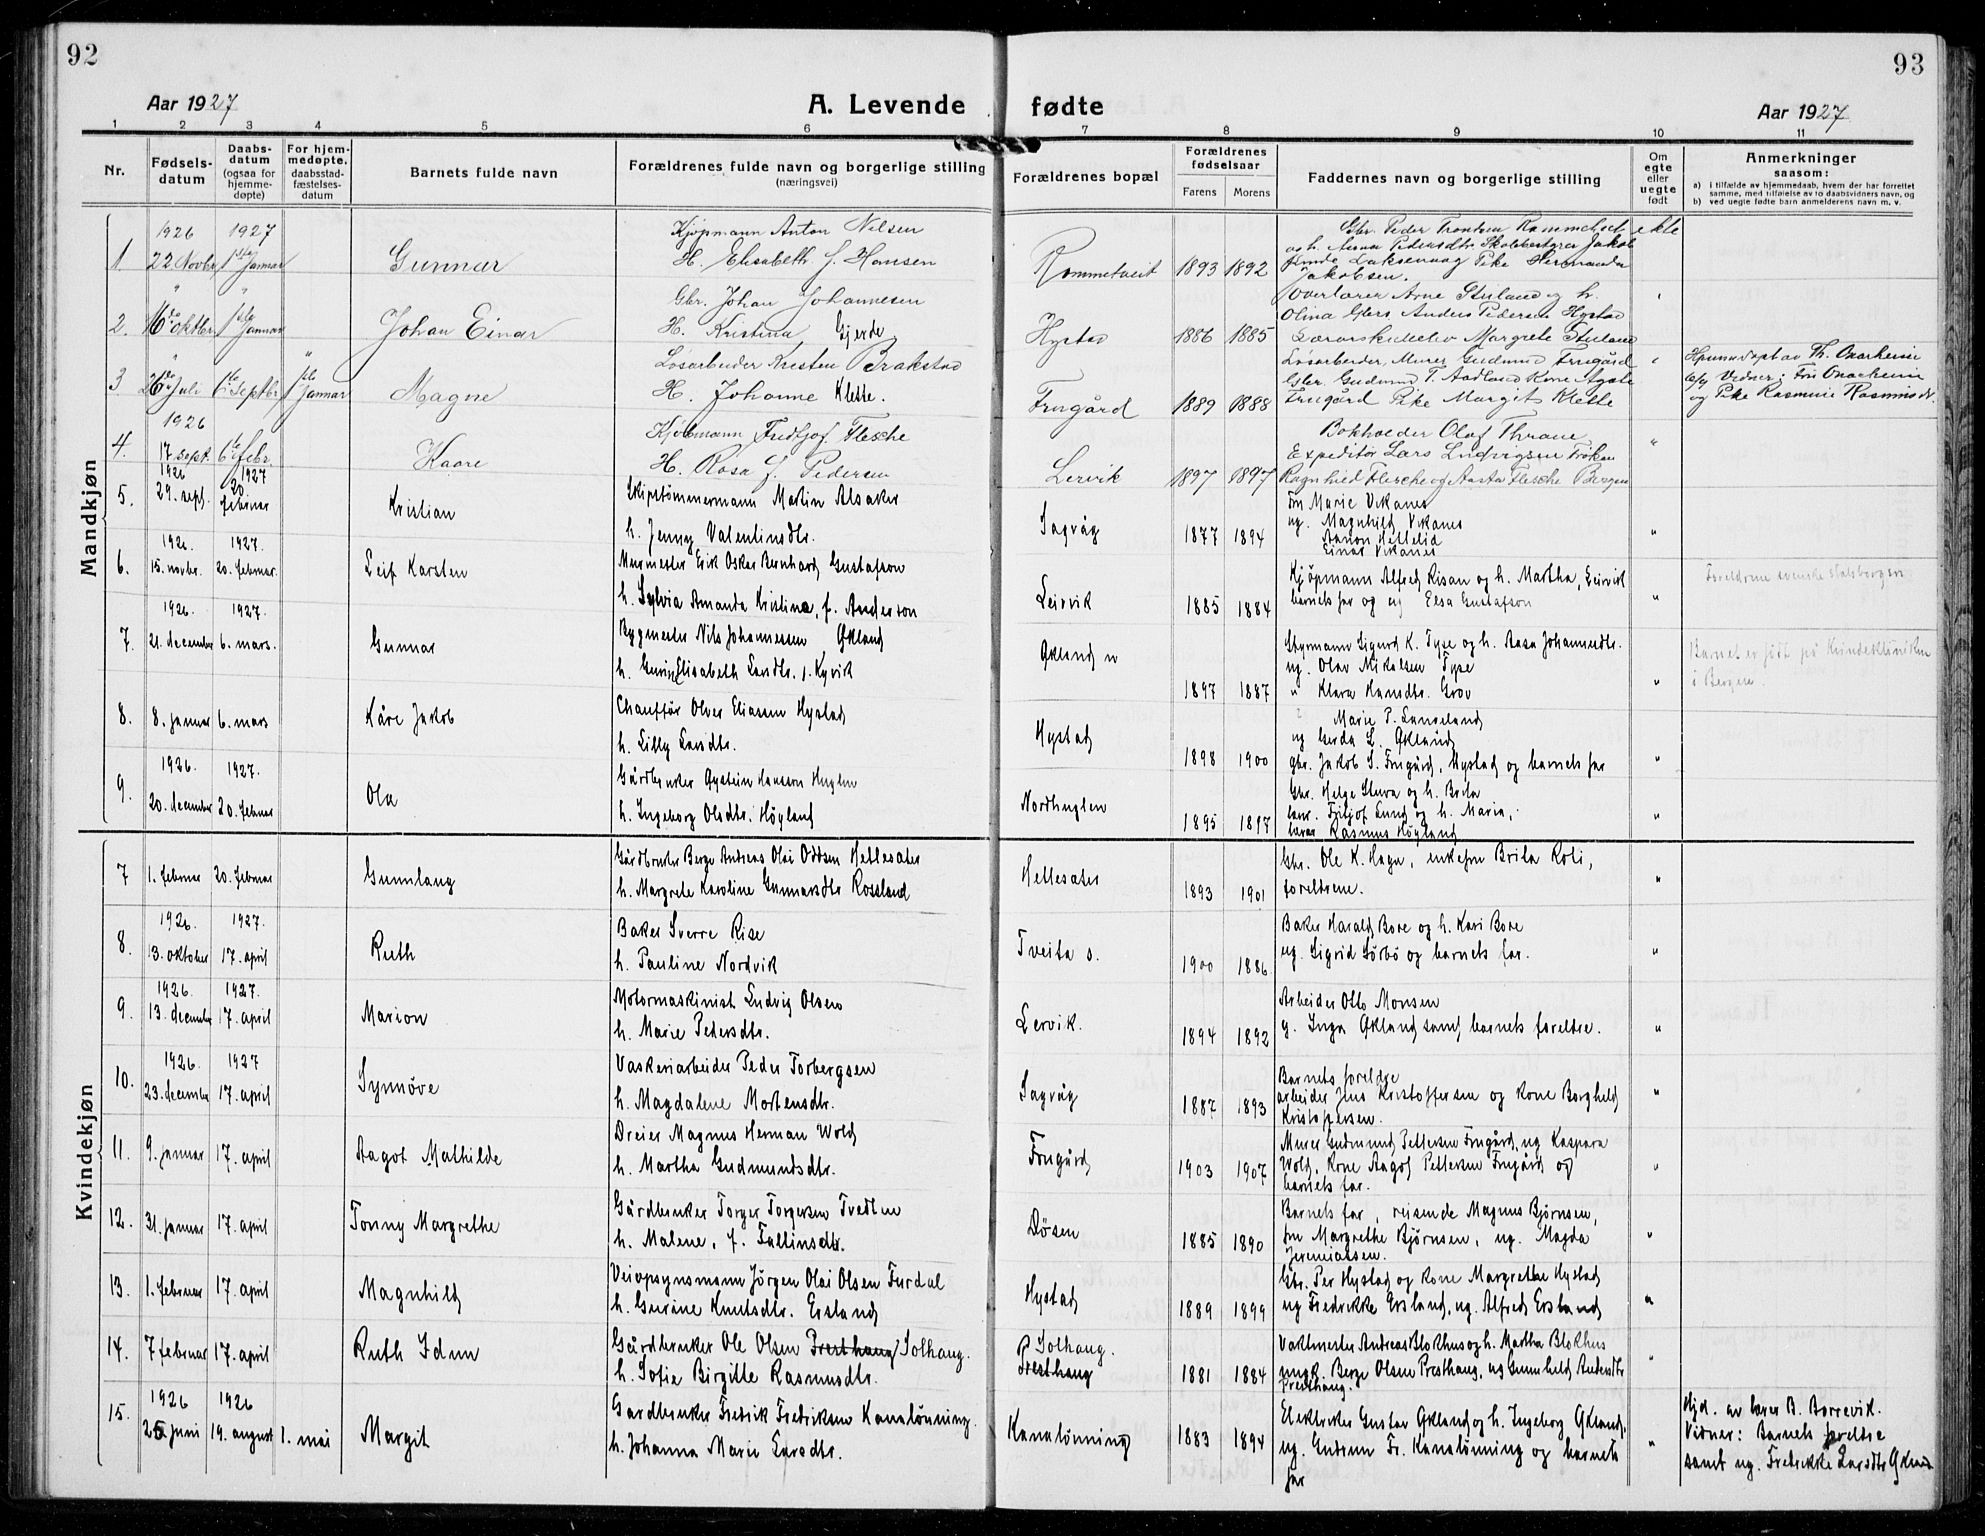 92
93
Aar 1927
A. Levende fødte
Aar 1927
1 2 3 4 5 6 7 8 9 10 11
Nr.
Fødsels-
datum
Daabs-
datum
(ogsaa for
hjemme-
døpte)
For hjem-
medøpte.
daabsstad-
fæstelses-
datum
Barnets fulde navn
Forældrenes fulde navn og borgerlige stilling
(næringsvei)
Forældrenes bopæl
Forældrenes
fødselsaar
Farens Morens
Faddernes navn og borgerlige stilling
Om
egte
eller
uegte
født
Anmerkninger
saasom:
a) i tilfælde av hjemmedaab, hvem der har forrettet
samme, med tilføielse av to daabsvidners navn, og
b) ved uegte fødte barn anmelderens navn m. v.
Mandkjøn
1926 1927 Kjøpmann Anton Nilsen
1 22 Novbr 1ste Januar Gunnar H. Elisabeth f. Hansen Rommetveit 1893 1892 ekte
Gbr. Peder Trontsen
og h. Anna Pedersdtr. Skolebestyrer Jakob
Laksevaag Pike
Jakobsen.
" " Gbr. Johan Johannesen
2. 16de oktbr. 1ste Januar Johan Einar H. Kristina Gjerde Hystad 1886 1885 "
Overlærer Arne Stuland og h.
Olina Gbr. Anders Pedersen Hystad
Margrete Stuland
" " Løsarbeider Kresten Brakstad
3 26de Juli 6te Septbr 1ste Januar Magne H. Johanne Klette. Frugård 1889 1888 "
Løsarbeider, Murer Gudmund Frugård
Gbr. Gudmund T. Aadland Kone Agote
Frugård Pike Margit Klette
Hjemmedøpt av Th. Onarheim
6/9 Vidner: Fru Onarheim
og Pike Rasmine Rasmusdr.
1926 Kjøbmann Fridtjof Flesche
4. 17 sept. 6te febr. Kaare H. Rosa f. Pedersen Lervik 1897 1897 "
Bokholder Olaf Thrane
Expeditør Lars Ludvigsen Frøken
Ragnhild Flesche og Aasta Flesche Bergen
1926 1927
5. 29. sept. 20 februar Kristian Skipstömmermann Martin Alsaker
h. Jenny Valentinsdtr. Sagvåg 1877 1894 "
Fru Marie Vikanes
ug. Magnhild Vikanes
Aanon Hellelid
Einar Vikanes
1926. 1927.
6. 15. novbr. 20. februar. Leif Karsten Murmester Erik Oskar Bernhard Gustafson
h. Sylvia Amanda Kristina, f. Anderson Leirvik 1885 1884 "
Kjøpmann Alfred Risan og h. Martha, Leirvik
barnets far og ug Elsa Gustafson
Foreldrene svenske statsborgere
1926. 1927.
7. 21. december 6. mars. Gunnar Bygmester Nils Johannessen Økland
h. Guri Elisabeth Larsdtr. f. Kyvik Økland n 1897 1887 "
Styrmann Sigurd K. Tyse og h. Aasa Johannesdtr.
ug. Olav Mikalsen Tyse
" Klara Hansdtr. Grov
Barnet er født på Kvindeklinikken
i Bergen.
8. 8. januar 6. mars Kåre Jakob Chauffør Olver Eliassen Hystad
h. Lilly Larsdtr. Hystad 1898 1900 "
Marie P. Langeland
ug Gerda L. Økland
gbr. Jakob S. Frugård, Hystad og barnets far
1926. 1927.
9. 20. december 20. februar Ola Gårdbruker Øystein Hansson Huglen
h. Ingeborg Olsdtr. Höyland Nordhuglen 1895 1897 "
Gbr. Helge Stuva og h. Brita
lær. Fritjof Lund og h. Maria,
lærer Rasmus Höyland
Kvindekjøn
7 1. februar 20. februar Gunnlaug Gårdbruker Berge Andreas Olai Oddsen Hellesæter
h. Margrete Karoline Gunnarsdtr Rossland Hellesæter 1893 1901 "
Gbr. Ole K. Haga, enkefru Brita Roti,
foreldrene.
1926. 1927.
8. 13. oktober 17. april Ruth Baker Sverre Rise
h. Pauline Nordvik Tveita s. 1900 1886 "
Baker Harald Bore og h. Kari Bore
ug. Sigrid Sörbö og barnets far.
1926. 1927.
9. 13. december 17. april Marion Motormaskinist Ludvig Olsen
h. Marie Pedersdtr. Lervik. 1894 1892 "
Arbeider Otto Monsen
g. Inga Økland samt barnets foreldre.
1926. 1927
10. 23. december 17. april Synnöve Vaskeriarbeider Peder Torbergsen
h. Magdalene Mortensdtr. Sagvåg 1887 1893 "
Barnets foreldre
arbeider Jens Kristoffersen og kone Borghild
Kristoffersen.
11. 9. januar 17. april Aagot Mathilde Dreier Magnus Herman Wold
h. Martha Gudmundsdtr. Frugård 1903 1907 "
Murer Gudmund Pettersen Frugård, ug Kaspara
Wold, kone Aagot Pettersen Frugård og
barnets far.
12. 31. januar 17. april Tonny Margrethe Gårdbruker Torger Torgersen Tvedten
h. Malene, f. Tallinsdtr. Døsen 1885 1890 "
Barnets far, reisende Magnus Bjørnsen,
fru Margrethe Bjørnsen, ug. Magda
Jeremiassen.
13. 1. februar 17. april Magnhild Veiopsynsmann Jörgen Olai Olsen Furdal
h. Gurine Knutsdtr. Ersland Hystad 1889 1899 "
Gbr. Per Hystad og kone Margrethe Hystad
ug Fredrikke Ersland, ug. Alfred Ersland
14. 7 februar 17. april Ruth Idun Gårdbruker Ole Olsen Presthaug Solhaug.
h. Sofia Birgitte Rasmusdtr. Solhaug.
Presthaug 1881 1884 "
Vaktmester Andreas Blokhus og h. Martha Blokhus
ungk. Berge Olsen Presthaug, ug Gunnhild Andersdtr
Presthaug.
1926 1926
15. 25 juni 19. august 1. mai Margit Gardbruker Fredrik Fredriksen Kanalönning.
h. Johanna Marie Larsdtr. Kanalönning 1883 1894 "
Elektriker Gustav Økland og h. Ingeborg Økland,
ug. Gudrun Fr. Kanalönning og barnets
far
Hjd. av lærer B. Borrevik.
Vidner: Barnets foreldre
samt ug. Fredrikke Larsdtr Økland